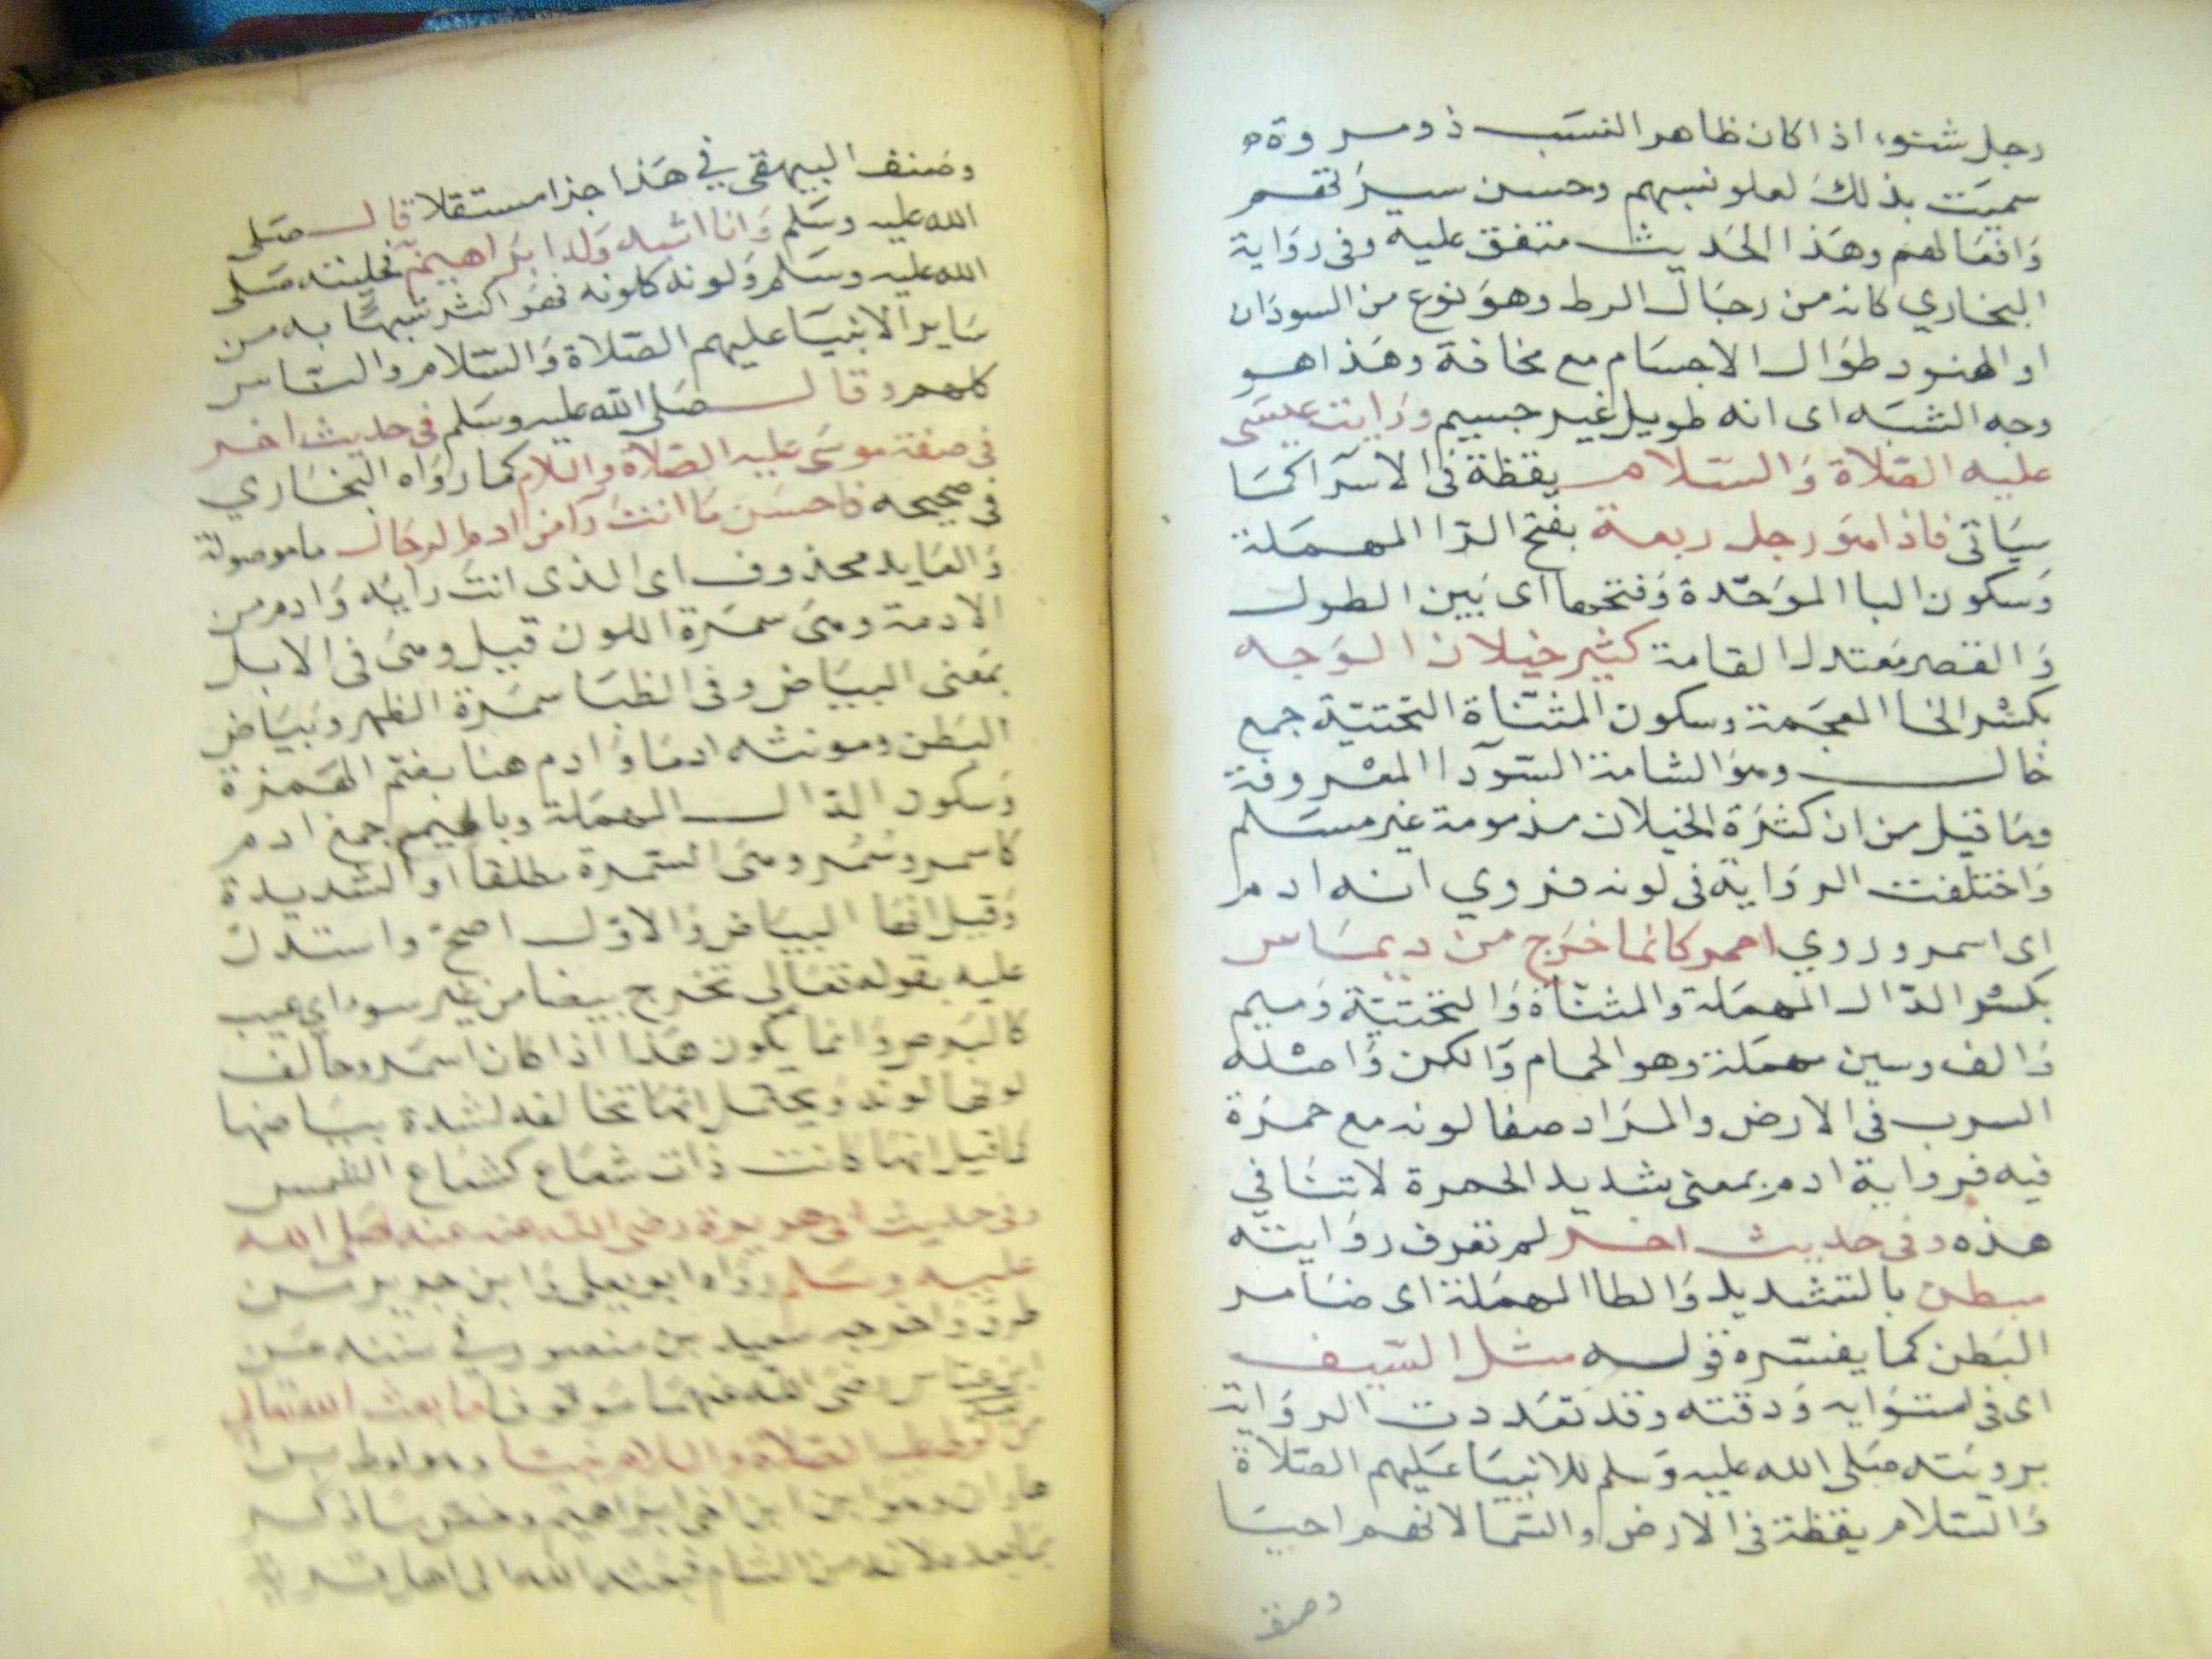 رجل شنوء اذا كان ظاهر النسب ذو مروة
سميت بذلك لعلو نسبهم وحسن سيرتهم
وافعالهم وهذا الحديث متفق عليه وفى رواية
البخاري كانه من رجال الرط وهو نوع من السودان
او الهنود طوال الاجسام مع نحافة وهذا هو
وجه الشبه اى انه طويل غير جسيم ورايت عيسى
عليه الصلاة والسلام يقظة فى الاسرا كما
سياتى فاذا هو رجل ربعة بفتح الرا المهملة
وسكون البا الموحدة وفتحها اى بين الطول
والقصر معتدل القامة كثير خيلان الوجه
بكسر الخا المعجمة وسكون المثناة التحتية جمع
خال وهو الشامة السودا المعروفة
وما قيل من ان كثرة الخيلان مذمومة غير مسلم
واختلفت الرواية فى لونه فروي انه ادم
اى اسمر وروي احمر كانما خرج من ديماس
بكسر الدال المهملة والمثناة والتحتية وميم
والف وسين مهملة وهو الحمام والكن واصله
السرب فى الارض والمراد صفا لونه مع حمرة
فيه فرواية ادم بمعنى شديد الحمرة لا تنافي
هذه وفى حديث اخر لم تعرف روايته
مبطن بالتشديد والطا المهملة اى ضامر
البطن كما يفسره قوله مثل السيف
اى فى استوايه ودقته وقد تعددت الرواية
برويته صلى الله عليه وسلم للانبيا عليهم الصلاة
والسلام يقظة فى الارض والسما لانهم احيا
وصنف
وصنف البيهقى في هذا جزا مستقلا قال صلى
الله عليه وسلم وانا اشبه ولد ابراهيم به فحليته صلى
الله عليه وسلم ولونه كلونه فهو اكثر شبها به من
ساير الانبيا عليهم الصلاة والسلام والناس
كلهم وقال صلى الله عليه وسلم فى حديث اخر
فى صفة موسى عليه الصلاة والسلام كما رواه البخاري
فى صحيحه فاحسن ما انت رآ من ادم الرجال ما موصولة
والعايد محذوف اى الذى انت رايه وادم من
الادمة وهى سمرة اللون قيل وهى فى الابل
بمعنى البياض وفى الظبا سمرة الظهر وبياض
البطن ومونثه ادما وادم هنا بفتح الهمزة
وسكون الدال المهملة وبالميم جمع ادم
كاسمر وسمر وهى السمرة مطلقا او الشديدة
وقيل انها البياض والاول اصح واستدل
عليه بقوله تعالى تخرج بيضا من غير سو اي عيب
كالبرص وانما يكون هذا اذا كان اسمر وخالف
لونها لونه ويحتمل انها تخالفه لشدة بياضها
كما قيل انها كانت ذات شعاع كشعاع الشمس
وفى حديث ابى هريرة رضى الله عنه عنه صلى الله
عليه وسلم رواه ابو يعلى وابن جرير من
طرق واخرجه سعيد بن منصور في سننه عن
ابن عباس رضى الله عنهما موقوفا ما بعث الله تعالى
من بعد لوط عليه الصلاة والسلام نبيا وهو لوط بن
هاران وهو ابن اخى ابراهيم
من الشام فبعثه الله الى اهل